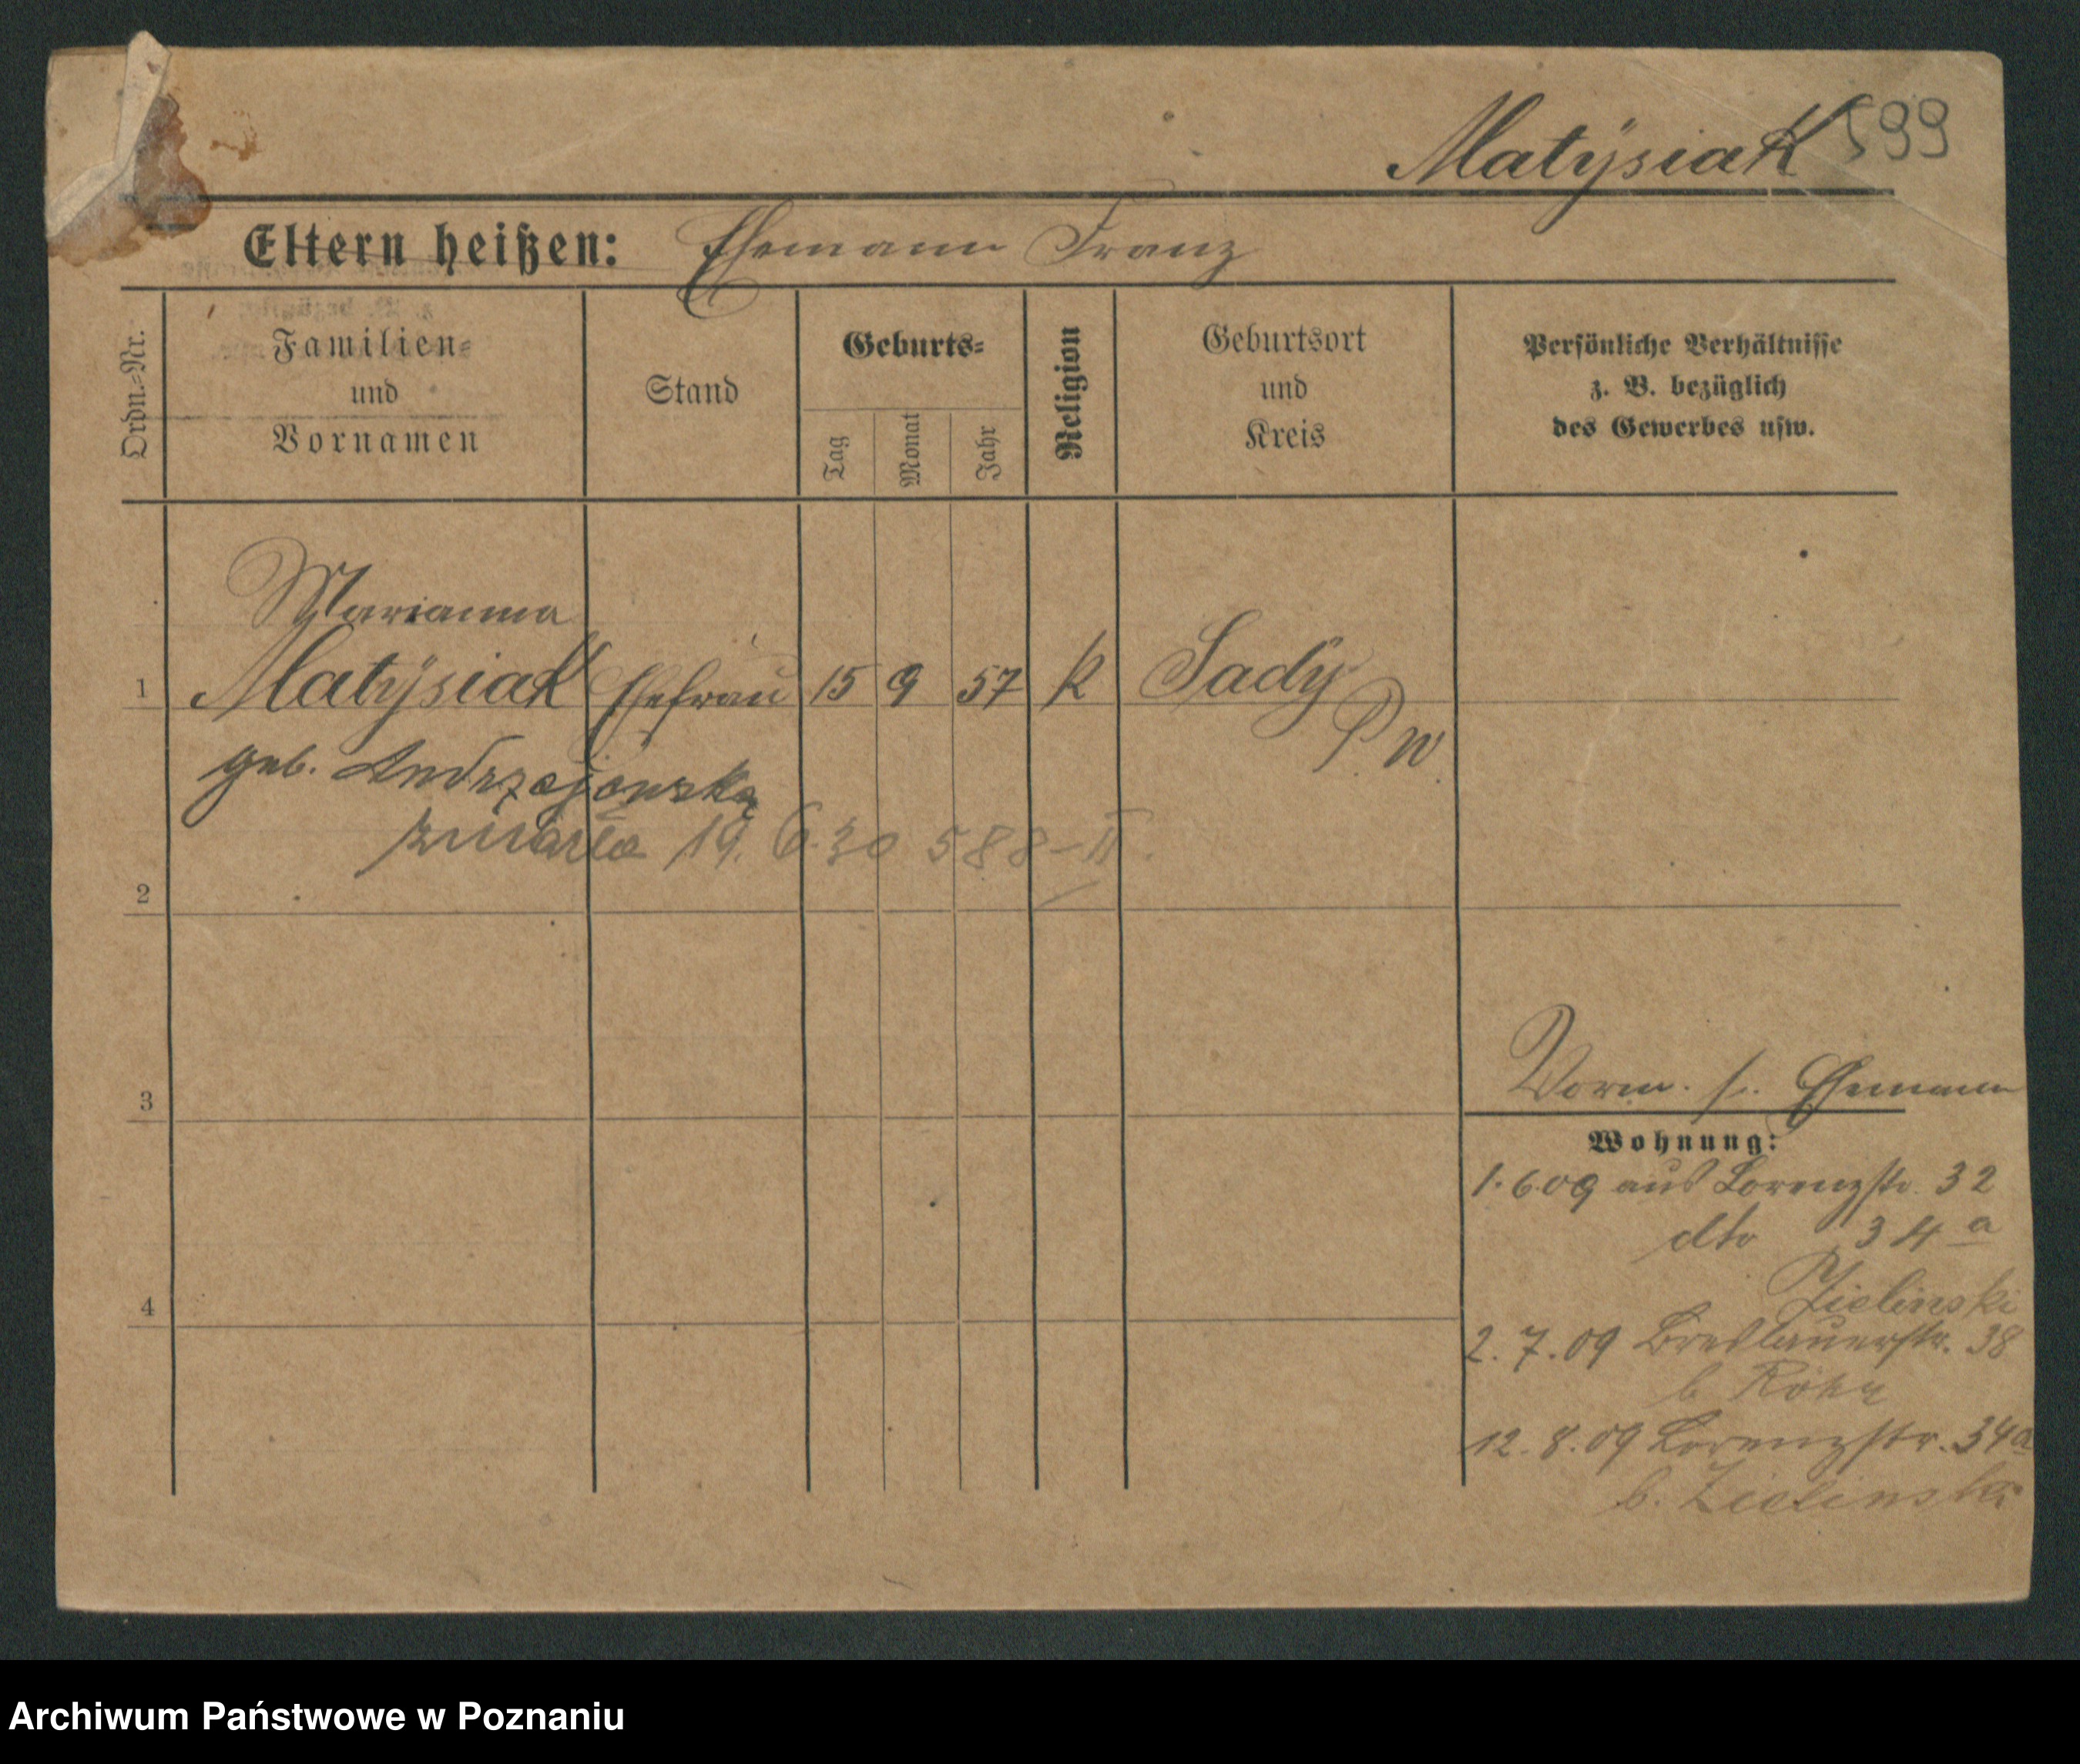 Matÿsiak 599
Eltern heißen: Ehemann Franz
Ordn.-Nr.
Familien-
und
Vornamen
Stand
Geburts-
Tag
Monat
Jahr
Religion
Geburtsort
und
Kreis
Persönliche Verhältnisse
z. B. bezüglich
des Gewerbes usw.
Marianna
1 Matÿsiak Ehefrau 15 9 57 K Sadÿ
P. W.
geb. Andrzejewska
zmarła 19. 6. 30 588-II.
2
3
4
Vorm. s. Ehemann
Wohnung:
1. 6 09 aus Lorenzstr. 32
dto 34 a
Zielinski
2. 7. 09 Breslauerstr. 38
b Rohr
12. 8. 09 Lorenzstr. 34a
b. Zielinski
Archiwum Państwowe w Poznaniu